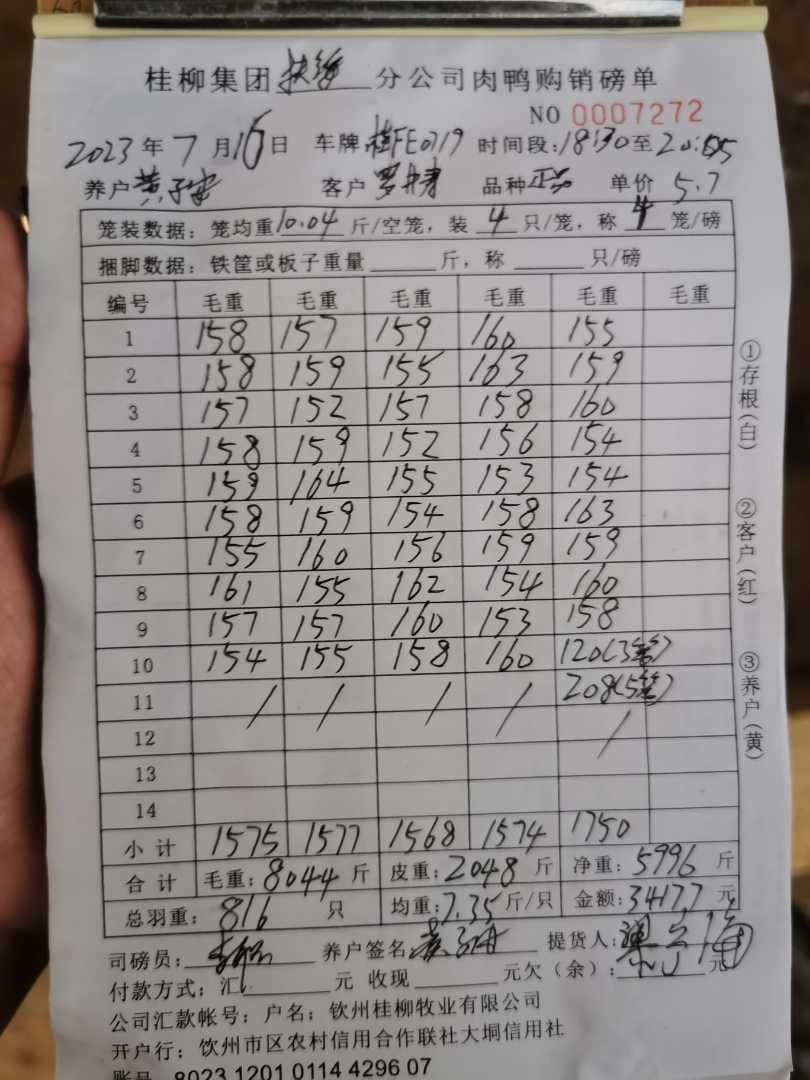 桂柳集团扶绥分公司肉鸭购销磅单
NO 0007272
2023年7月16日 车牌:桂FE0719 时间段:18:30至20:05
养户 黄子安 客户 罗 品种 正品 单价 5.7
笼装数据：笼均重10.04斤/空笼，装4只/笼，称4笼/磅
捆脚数据：铁筐或板子重量 斤，称 只/磅
编号 毛重 毛重 毛重 毛重 毛重 毛重
1 158 157 159 160 155
2 158 159 155 163 159
3 157 152 157 158 160
4 158 159 152 156 154
5 159 164 155 153 154
6 158 159 154 158 163
7 155 160 156 159 159
8 161 155 162 154 160
9 157 157 160 153 158
10 154 155 158 160 120(3笼)
11 / / / / 208(5笼)
12 /
13
14
小计 1575 1577 1568 1574 1750
合计 毛重:8044斤 皮重:2048斤 净重:5996斤
总羽重：816只 均重:7.35斤/只 金额:34177元
司磅员: 养户签名 黄子安 提货人:
付款方式：汇 元 收现 元欠（余）: 元
公司汇款帐号：户名：钦州桂柳牧业有限公司
开户行：钦州市区农村信用合作联社大垌信用社
账号 8023 1201 0114 4296 07
①存根(白)
②客户(红)
③养户(黄)